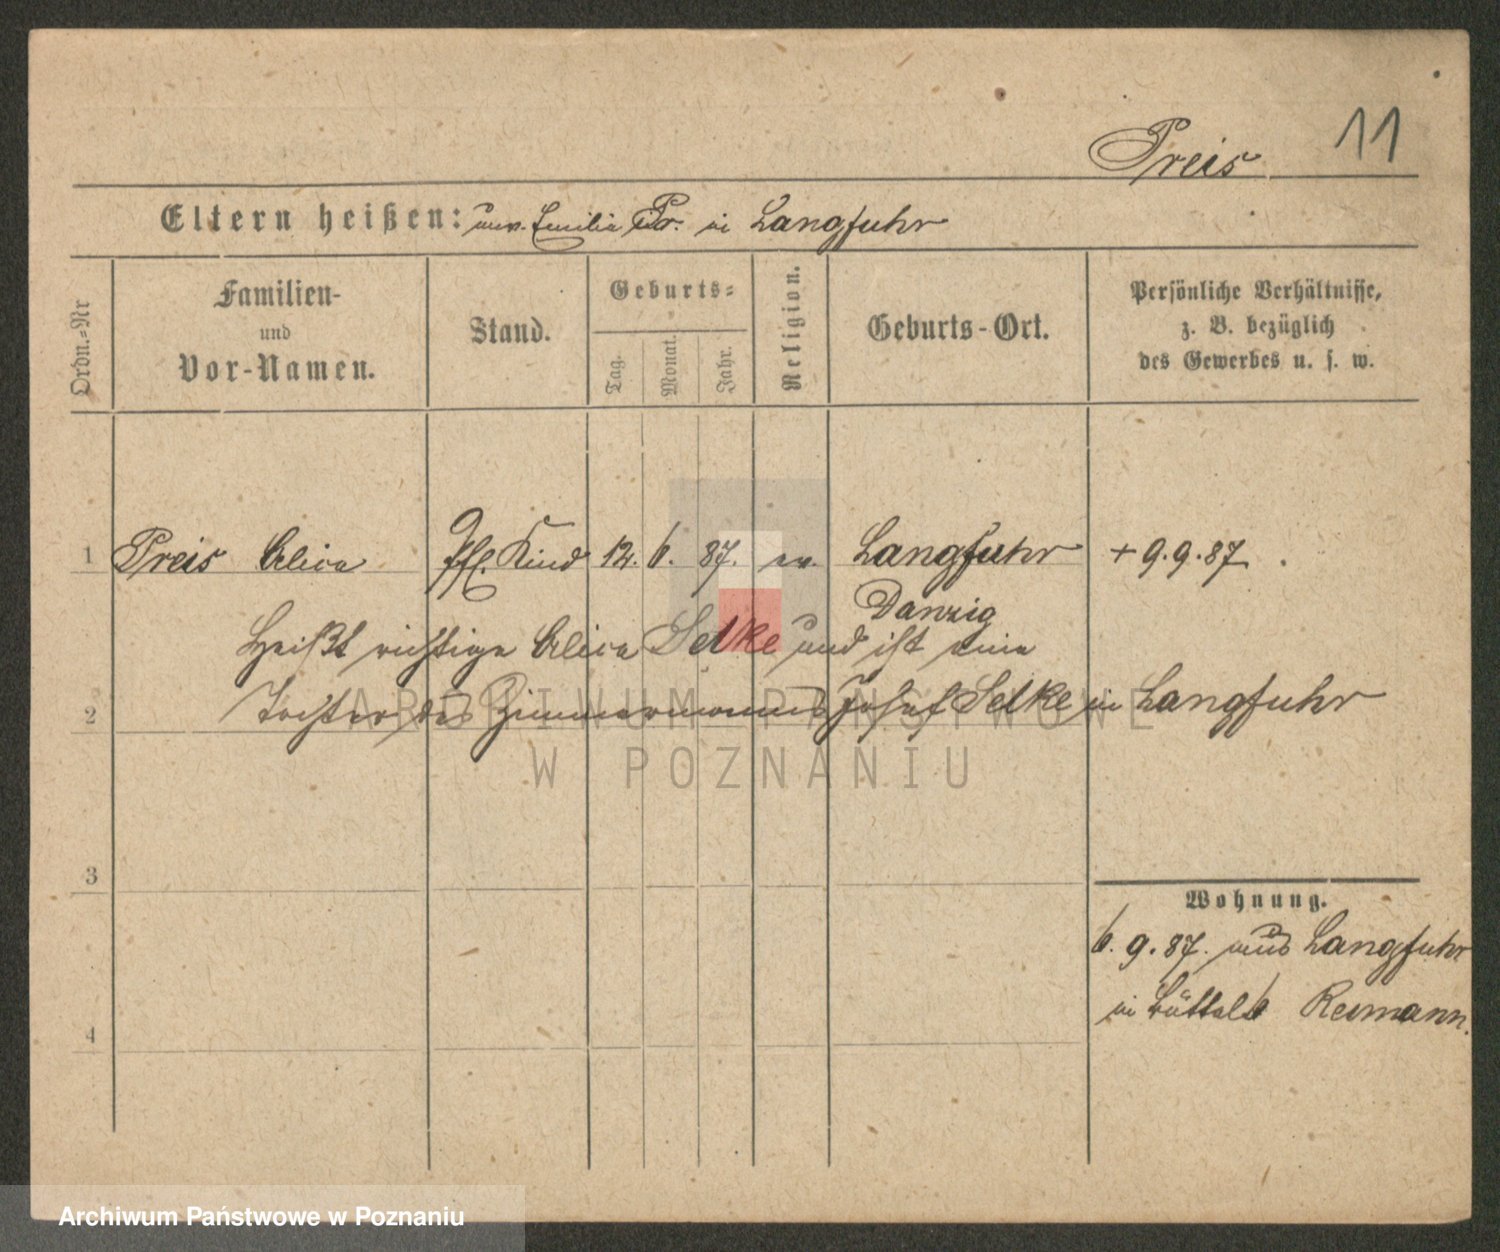 Preis 11
Eltern heißen: unv. Emilie Pr. in Langfuhr
Ordn.-Nr
Familien-
und
Vor-Namen.
Stand.
Geburts-
Tag.
Monat.
Jahr.
Religion.
Geburts-Ort.
Persönliche Verhältnisse,
z. B. bezüglich
des Gewerbes u. s. w.
1 Preis Alice Pfl. Kind 12. 6. 87. ev. Langfuhr + 9.9.87.
Danzig
Heißt richtige Alice Selke und ist eine
2 Tochter des Zimmermanns Josef Selke in Langfuhr
3
Wohnung.
6. 9. 87. aus Langfuhr
in Reimann.
4
ARCHIWUM PAŃSTWOWE
W POZNANIU
Archiwum Państwowe w Poznaniu